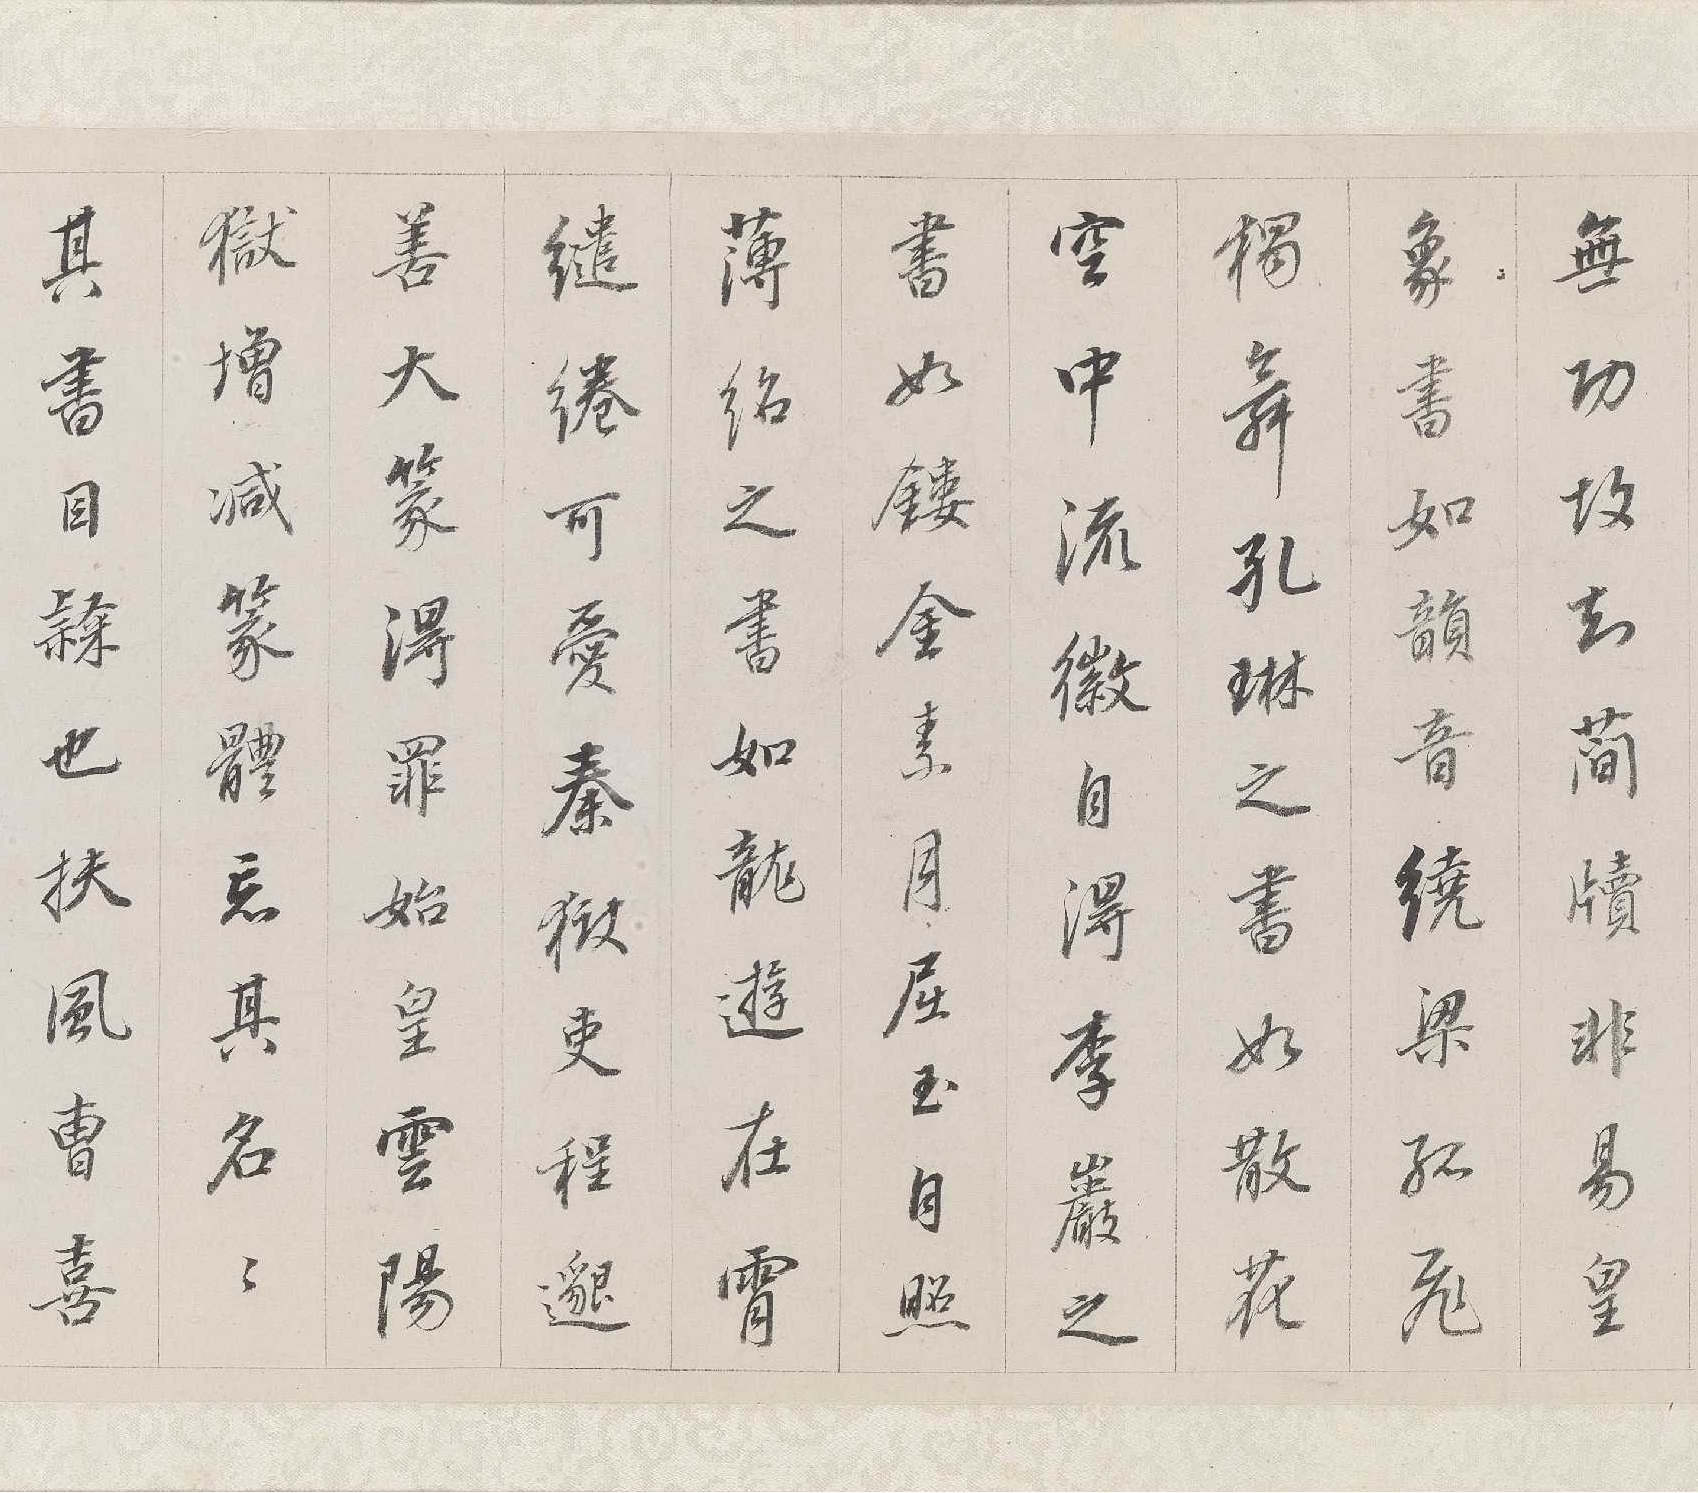 無功故去簡牘非易皇
象書如韻音繞梁孤飛
獨舞孔琳之書如散花
空中流徽自得李巖之
書如鏤金素月屈玉自照
薄紹之書如龍遊在霄
繾綣可愛秦獄吏程邈
善大篆得罪始皇雲陽
獄增減篆體忘其名〻
其書曰隸也扶風曹喜